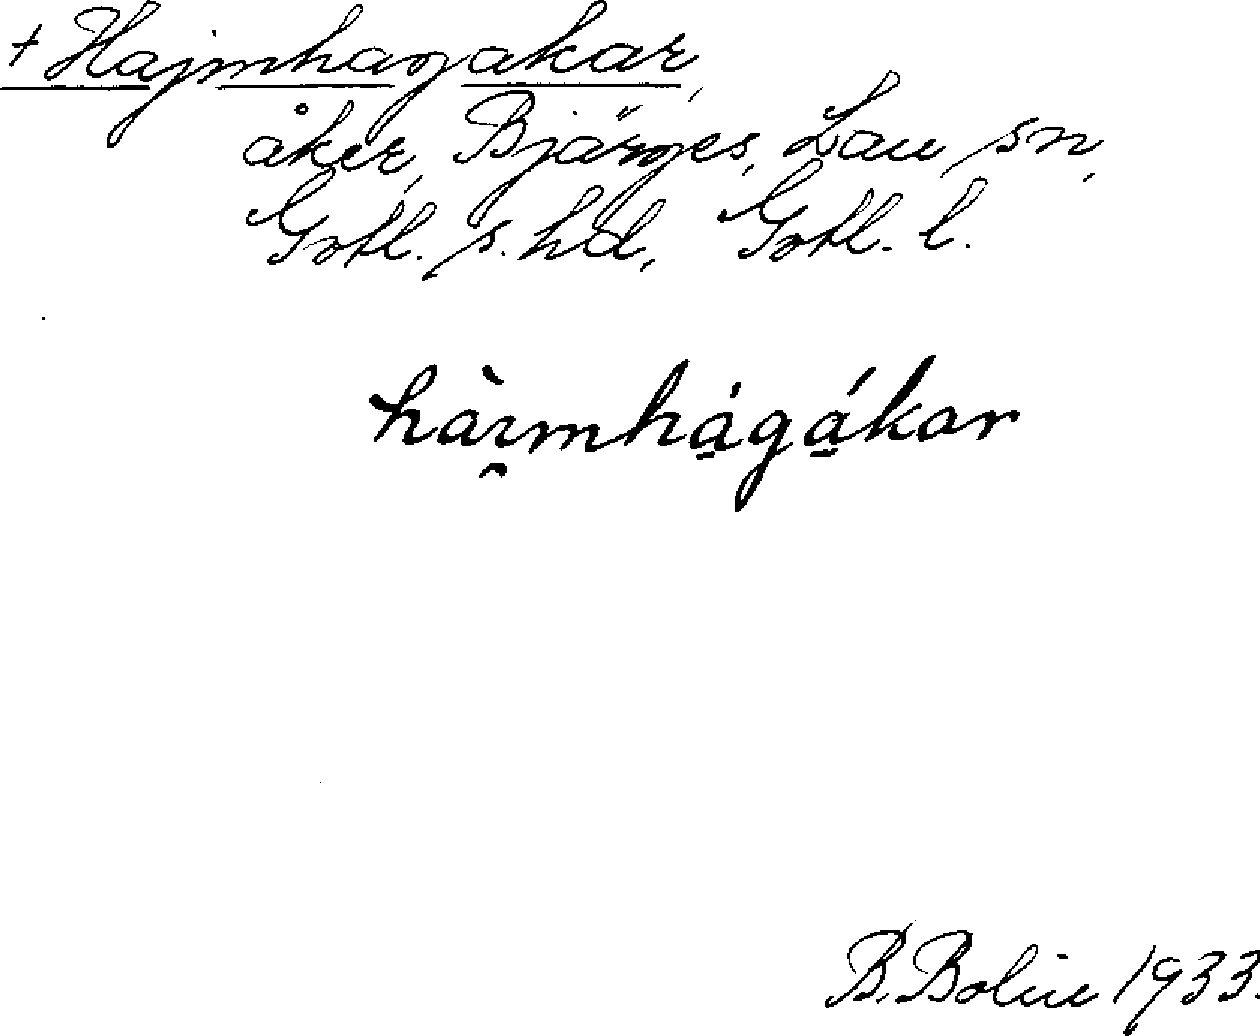 + Hajmhagakar,
åker, Bjärges, Lau sn,
Gotl. s. hd, Gotl. l.
hàɪ̯mhá̱gá̱kar
B. Bolin 1933.